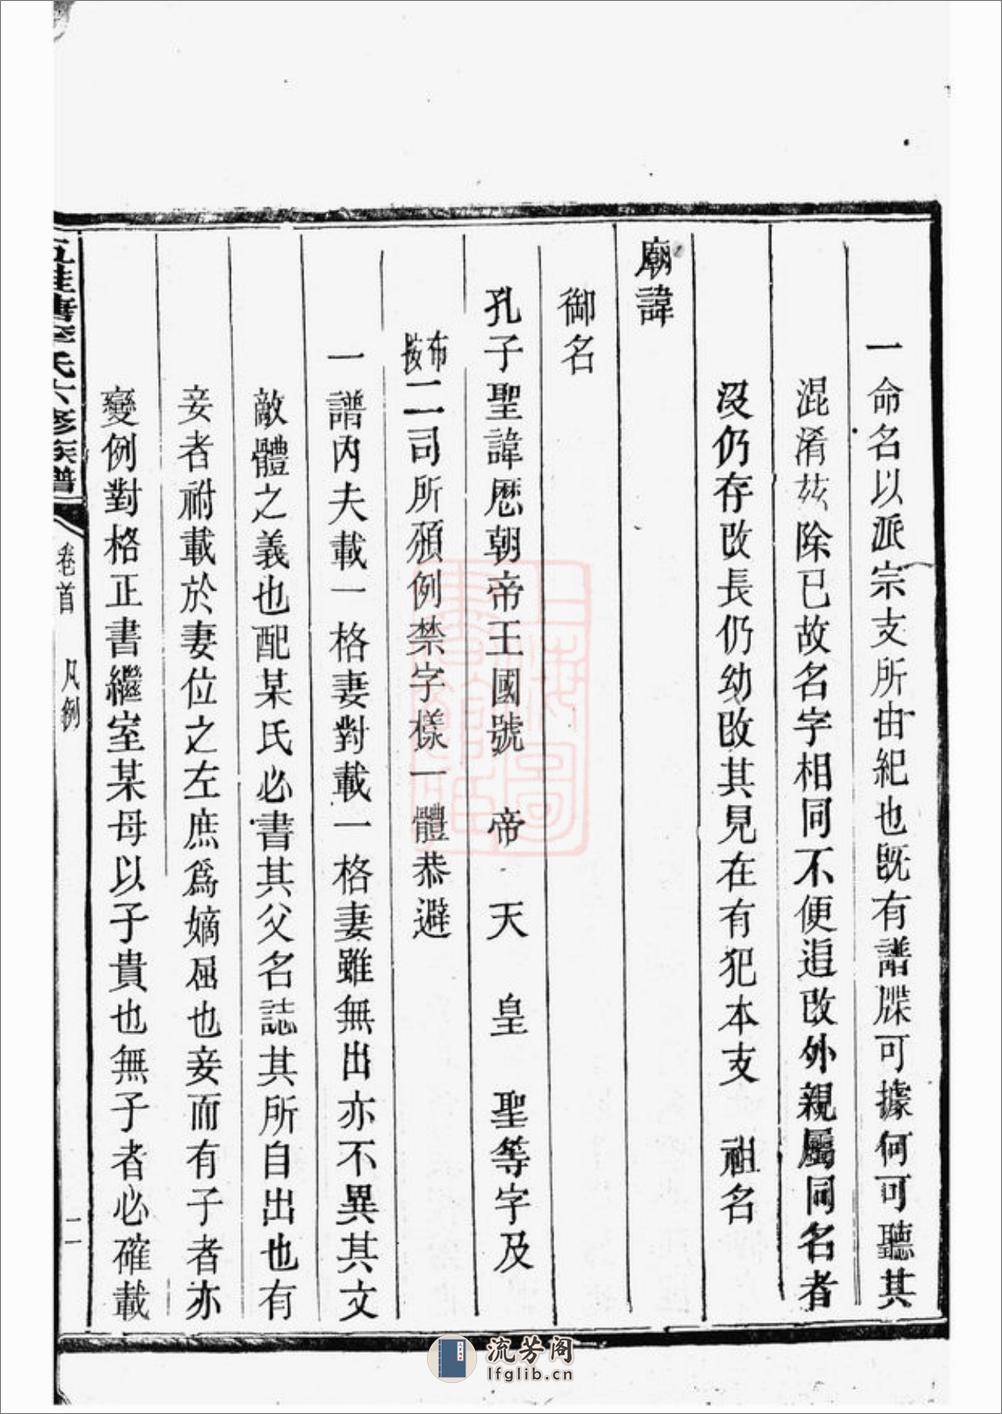 一命名以派宗支所由紀也旣有譜牒可據何可聽其
混淆玆除已故名字相同不便追改外親屬同名者
沒仍存改長仍幼改其見在有犯本支 祖名
廟諱
御名
孔子聖諱歷朝帝王國號 帝 天 皇 聖等字及
布按二司所頒例禁字樣一體恭避
一譜內夫載一格妻對載一格妻雖無出亦不異其文
敵體之義也配某氏必書其父名誌其所自出也有
妾者祔載於妻位之左庶爲嫡屈也妾而有子者亦
變例對格正書繼室某母以子貴也無子者必確載
五桂塘李氏六修族譜 卷首 凡例 二
上海圖書館藏
流芳阁
lfglib.cn